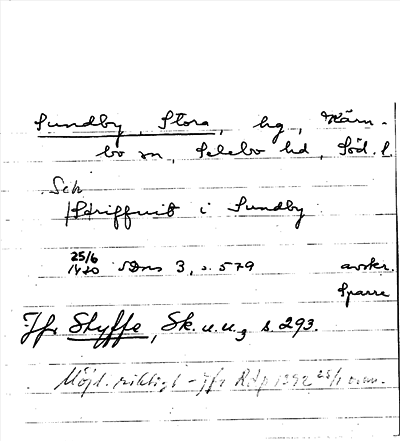 Sundby, Stora, hg, Kärn-
bo sn, Selebo hd, Söd. l.
Sch
Skriffuit i Sundby
25/6
1420 SDns 3, s. 579 avskr.
Sparre
Jfr Styffe, Sk. u. u., s 293.
Möjl. riktigt - jfr RAp 1392 28/1 o.m.